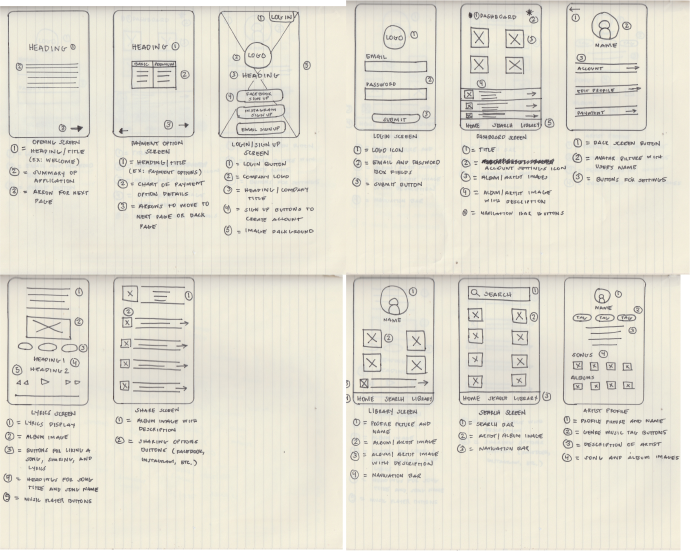 HEADING ①
③
②
OPENING SCREEN
① = HEADING/TITLE
(EX: WELCOME)
② = SUMMARY OF
APPLICATION
③ = ARROW FOR NEXT
PAGE
HEADING ①
BASIC PREMIUM
②
③
PAYMENT OPTION
SCREEN
① = HEADING/TITLE
(EX: PAYMENT OPTIONS)
② = CHART OF PAYMENT
OPTION DETAILS
③ = ARROWS TO MOVE TO
NEXT PAGE OR BACK
PAGE
① LOG IN
② LOGO
⑤
③ HEADING
④ FACEBOOK
SIGN UP
INSTAGRAM
SIGN UP
EMAIL SIGN UP
LOGIN/SIGN UP
SCREEN
① = LOGIN BUTTON
② = COMPANY LOGO
③ = HEADING/COMPANY
TITLE
④ = SIGN UP BUTTONS TO
CREATE ACCOUNT
⑤ = IMAGE BACKGROUND
LOGO ①
EMAIL
②
PASSWORD
SUBMIT ③
LOGIN SCREEN
① = LOGO ICON
② = EMAIL AND PASSWORD
BOX FIELDS
③ = SUBMIT BUTTON
① DASHBOARD
②
③
④
HOME SEARCH LIBRARY ⑤
DASHBOARD SCREEN
① = TITLE
② = ACCOUNT SETTINGS ICON
③ = ALBUM/ARTIST IMAGES
④ = ALBUM/ARTIST IMAGE
WITH DESCRIPTION
⑤ = NAVIGATION BAR BUTTONS
①
②
NAME
③
ACCOUNT
EDIT PROFILE
PAYMENT
① = BACK SCREEN BUTTON
② = AVATAR PICTURE WITH
USER'S NAME
③ = BUTTONS FOR SETTINGS
①
②
③
HEADING 1 ④
⑤ HEADING 2
LYRICS SCREEN
① = LYRICS DISPLAY
② = ALBUM IMAGE
③ = BUTTONS FOR LIKING A
SONG, SHARING, AND
LYRICS
④ = HEADINGS FOR SONG
TITLE AND SONG NAME
⑤ = MUSIC PLAYER BUTTONS
①
②
SHARE SCREEN
① = ALBUM IMAGE WITH
DESCRIPTION
② = SHARING OPTIONS
BUTTONS (FACEBOOK,
INSTAGRAM, ETC.)
①
NAME
②
HOME SEARCH LIBRARY
LIBRARY SCREEN
① = PROFILE PICTURE AND
NAME
② = ALBUM/ARTIST IMAGE
③ = ALBUM/ARTIST IMAGE
WITH DESCRIPTION
④ = NAVIGATION BAR
SEARCH ①
②
HOME SEARCH LIBRARY ③
SEARCH SCREEN
① = SEARCH BAR
② = ARTIST/ALBUM IMAGE
③ = NAVIGATION BAR
①
NAME
②
TAG TAG TAG
③
SONGS ④
ALBUMS
ARTIST PROFILE
① = PROFILE PICTURE AND NAME
② = GENRE MUSIC TAG BUTTONS
③ = DESCRIPTION OF ARTIST
④ = SONG AND ALBUM IMAGES